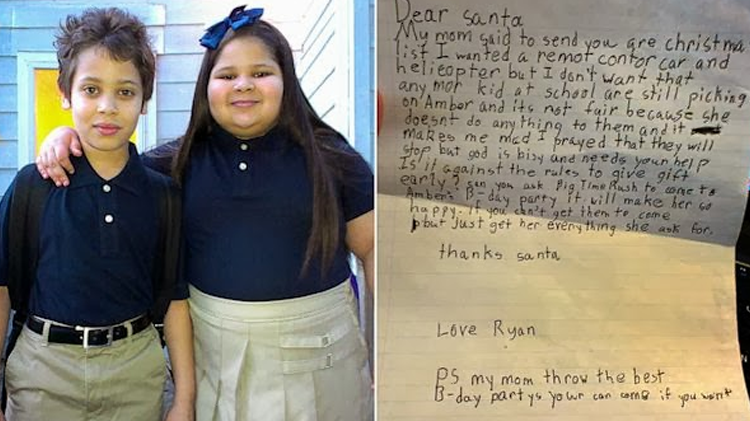 Dear santa
My mom said to send you are christma
list I wanted a remot contor car and
helicopter but I don't want that
any mor kid at school are still picking
on Amber and its not fair because she
doesnt do anything to them and it
makes me mad I prayed that they will
stop but god is bisy and needs your help
Is it against the rules to give gift
early? can you ask Big Time Rush to come to
Amber's B-day party it will make her so
happy. If you can't get them to come
but just get her everything she ask for.
thanks santa
Love Ryan
PS my mom throw the best
B-day partys your can come if you want